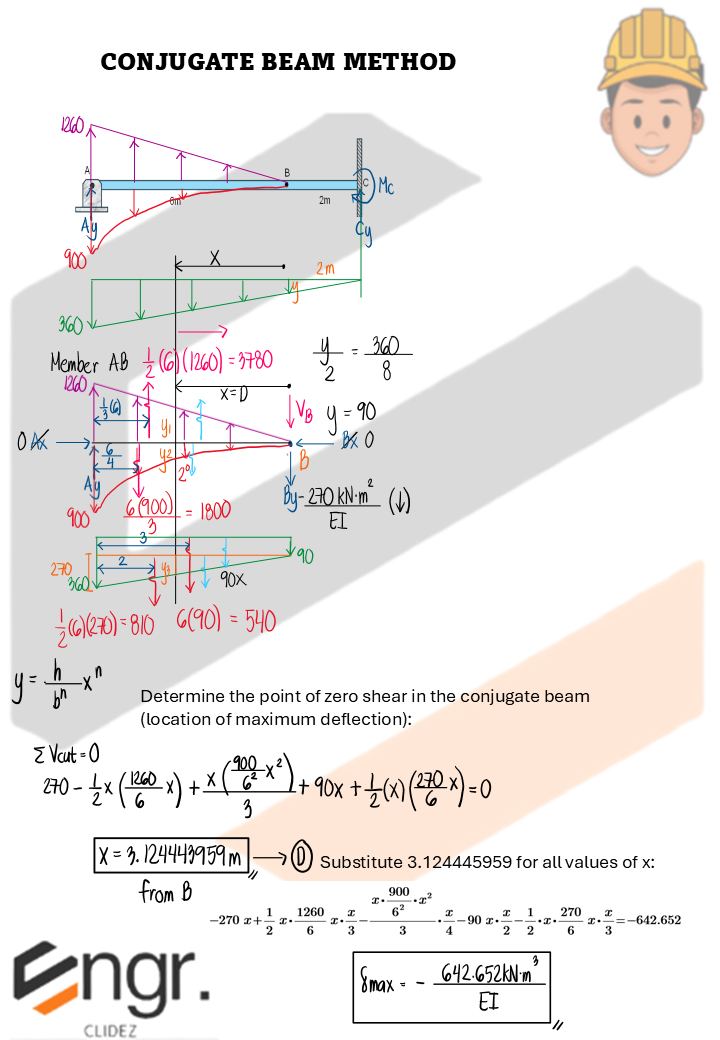 CONJUGATE BEAM METHOD
1260
A
B
C
Mc
6m
2m
Ay
Cy
900
X
2m
y
360
Member AB
1/2 (6)(1260) = 3780
y/2 = 360/8
1260
x=D
1/3(6)
V_B
y = 90
y₁
0 Ax
Bx 0
6/4
y₂
2°
B
Ay
By - 270 kN·m²/EI (↓)
900
6(900)/3 = 1800
3
90
270
2
360
y₃
90x
1/2(6)(270) = 810
6(90) = 540
y = h/bⁿ xⁿ
Determine the point of zero shear in the conjugate beam
(location of maximum deflection):
Σ Vcut = 0
270 - 1/2 x (1260/6 x) + x(900/6² x²)/3 + 90x + 1/2 (x)(270/6 x) = 0
x = 3.124443959 m → D
Substitute 3.124445959 for all values of x:
from B
−270 x + 1/2 x · 1260/6 x · x/3 − (x · 900/6² · x²)/3 · x/4 − 90 x · x/2 − 1/2 x · 270/6 x · x/3 = −642.652
δmax = - 642.652kN·m³/EI
Engr.
CLIDEZ